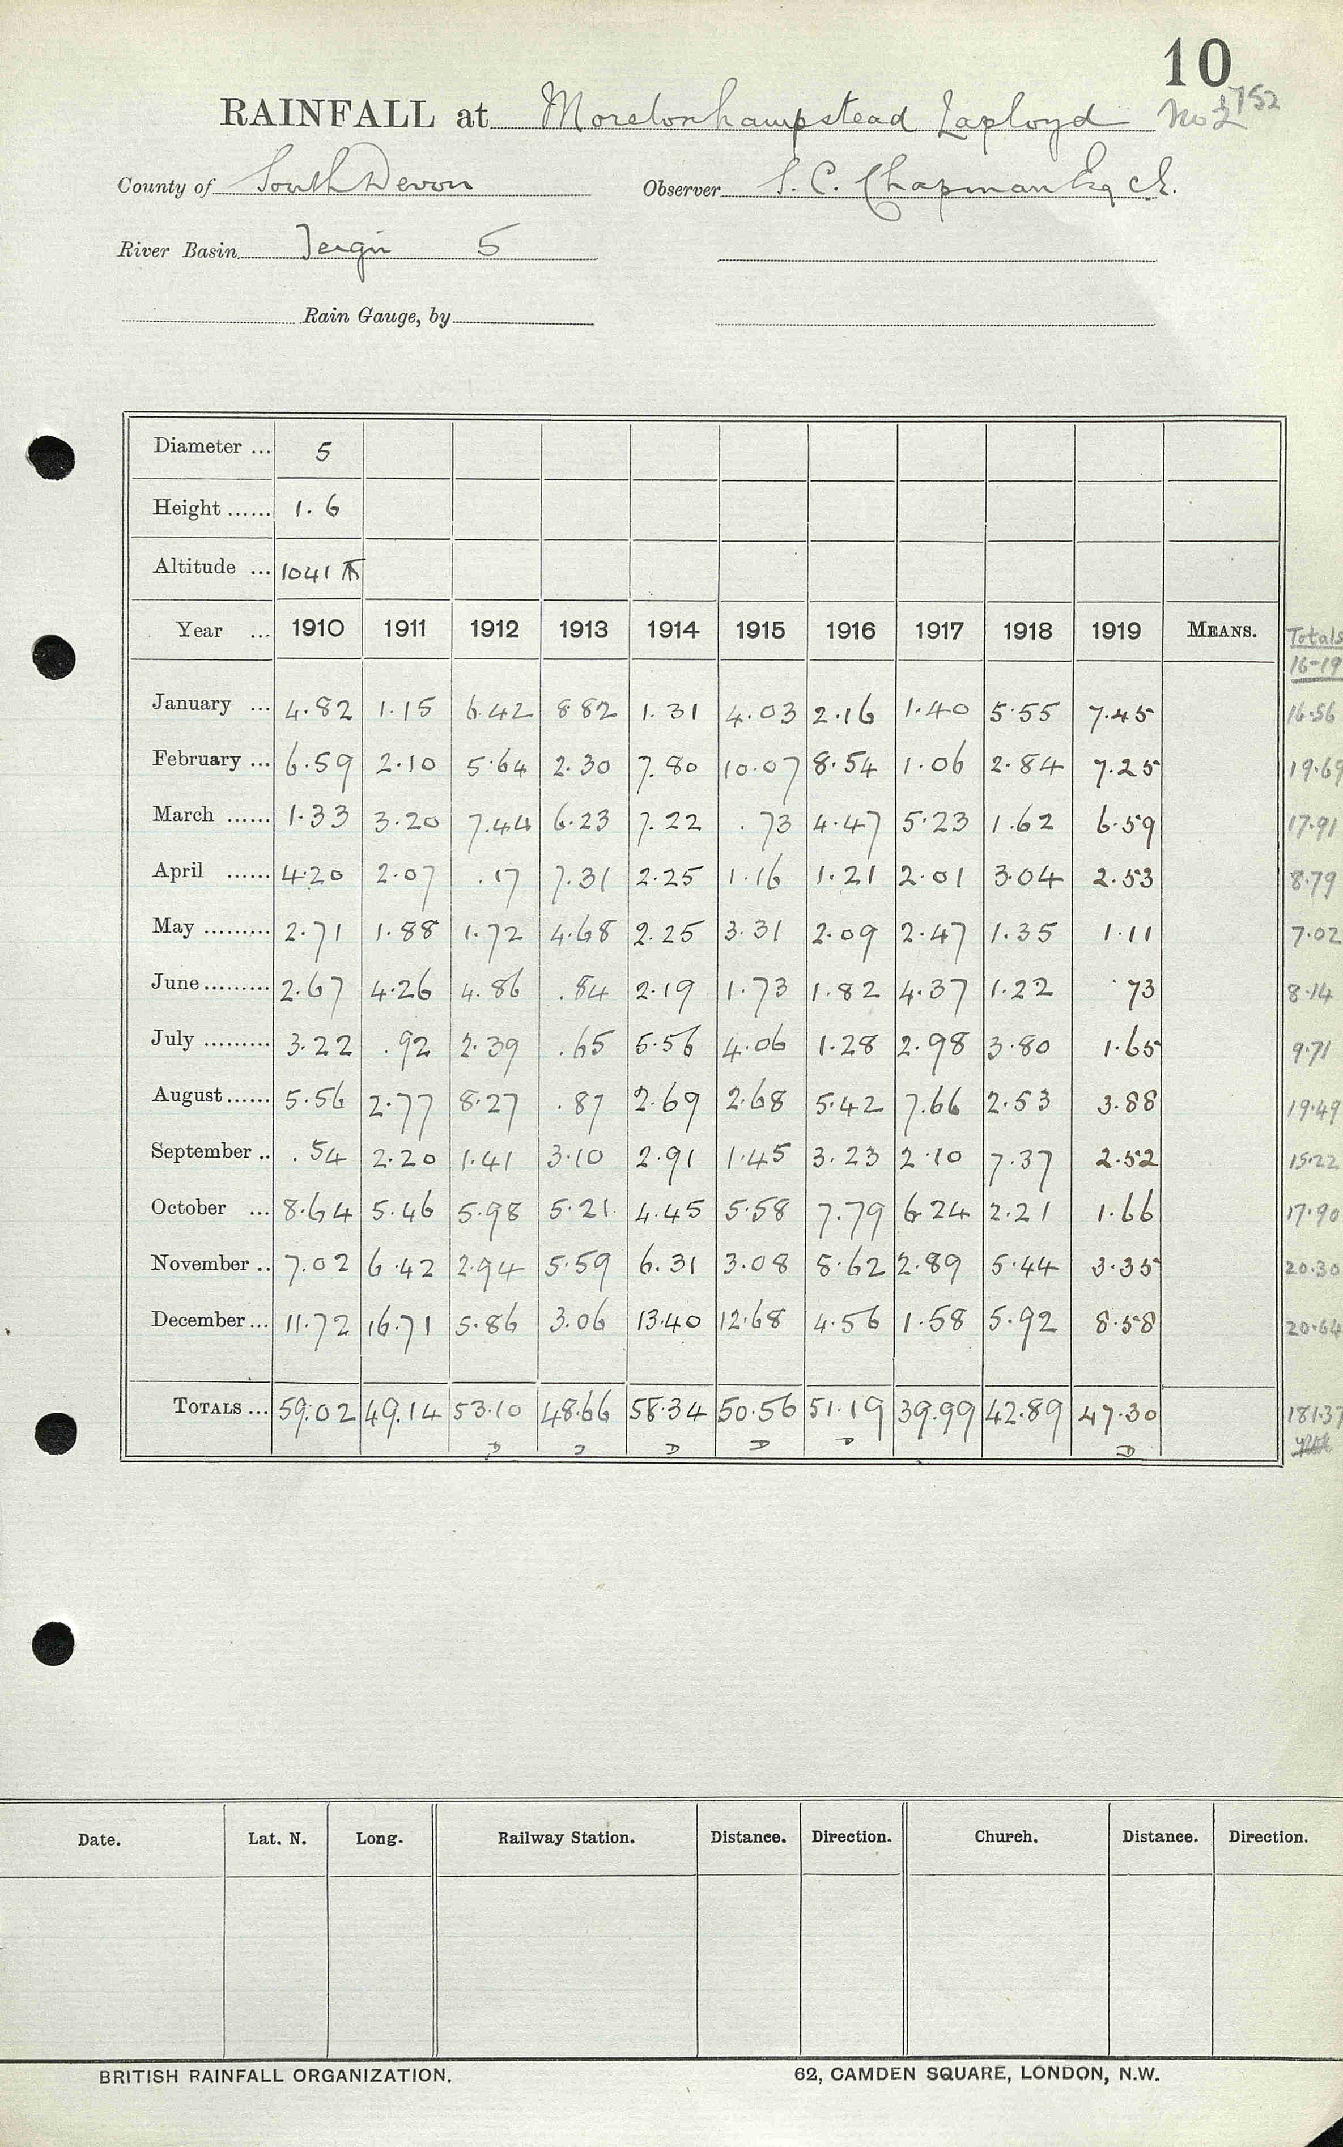 10
RAINFALL at Moretonhampstead Laployd No 2 752
County of South Devon Observer S. C. Chapman Esq C.E.
River Basin Teign 5
Rain Gauge, by
Diameter ... 5
Height ...... 1.6
Altitude ... 1041
Year ... 1910 1911 1912 1913 1914 1915 1916 1917 1918 1919 MEANS. Totals
16-19
January ... 4.82 1.15 6.42 8.82 1.31 4.03 2.16 1.40 5.55 7.45 16.56
February ... 6.59 2.10 5.64 2.30 7.80 10.07 8.54 1.06 2.84 7.25 19.69
March ...... 1.33 3.20 7.44 6.23 7.22 .73 4.47 5.23 1.62 6.59 17.91
April ...... 4.20 2.07 .17 7.31 2.25 1.16 1.21 2.01 3.04 2.53 8.79
May ......... 2.71 1.88 1.72 4.68 2.25 3.31 2.09 2.47 1.35 1.11 7.02
June ......... 2.67 4.26 4.86 .84 2.19 1.73 1.82 4.37 1.22 .73 8.14
July ......... 3.22 .92 2.39 .65 5.56 4.06 1.28 2.98 3.80 1.65 9.71
August ...... 5.56 2.77 8.27 .87 2.69 2.68 5.42 7.66 2.53 3.88 19.49
September .. .54 2.20 1.41 3.10 2.91 1.45 3.23 2.10 7.37 2.52 15.22
October ... 8.64 5.46 5.98 5.21 4.45 5.58 7.79 6.24 2.21 1.66 17.90
November .. 7.02 6.42 2.94 5.59 6.31 3.08 8.62 2.89 5.44 3.35 20.30
December ... 11.72 16.71 5.86 3.06 13.40 12.68 4.56 1.58 5.92 8.58 20.64
TOTALS ... 59.02 49.14 53.10 48.66 58.34 50.56 51.19 39.99 42.89 47.30 181.37
D D D D D D
Date. Lat. N. Long. Railway Station. Distance. Direction. Church. Distance. Direction.
BRITISH RAINFALL ORGANIZATION. 62, CAMDEN SQUARE, LONDON, N.W.